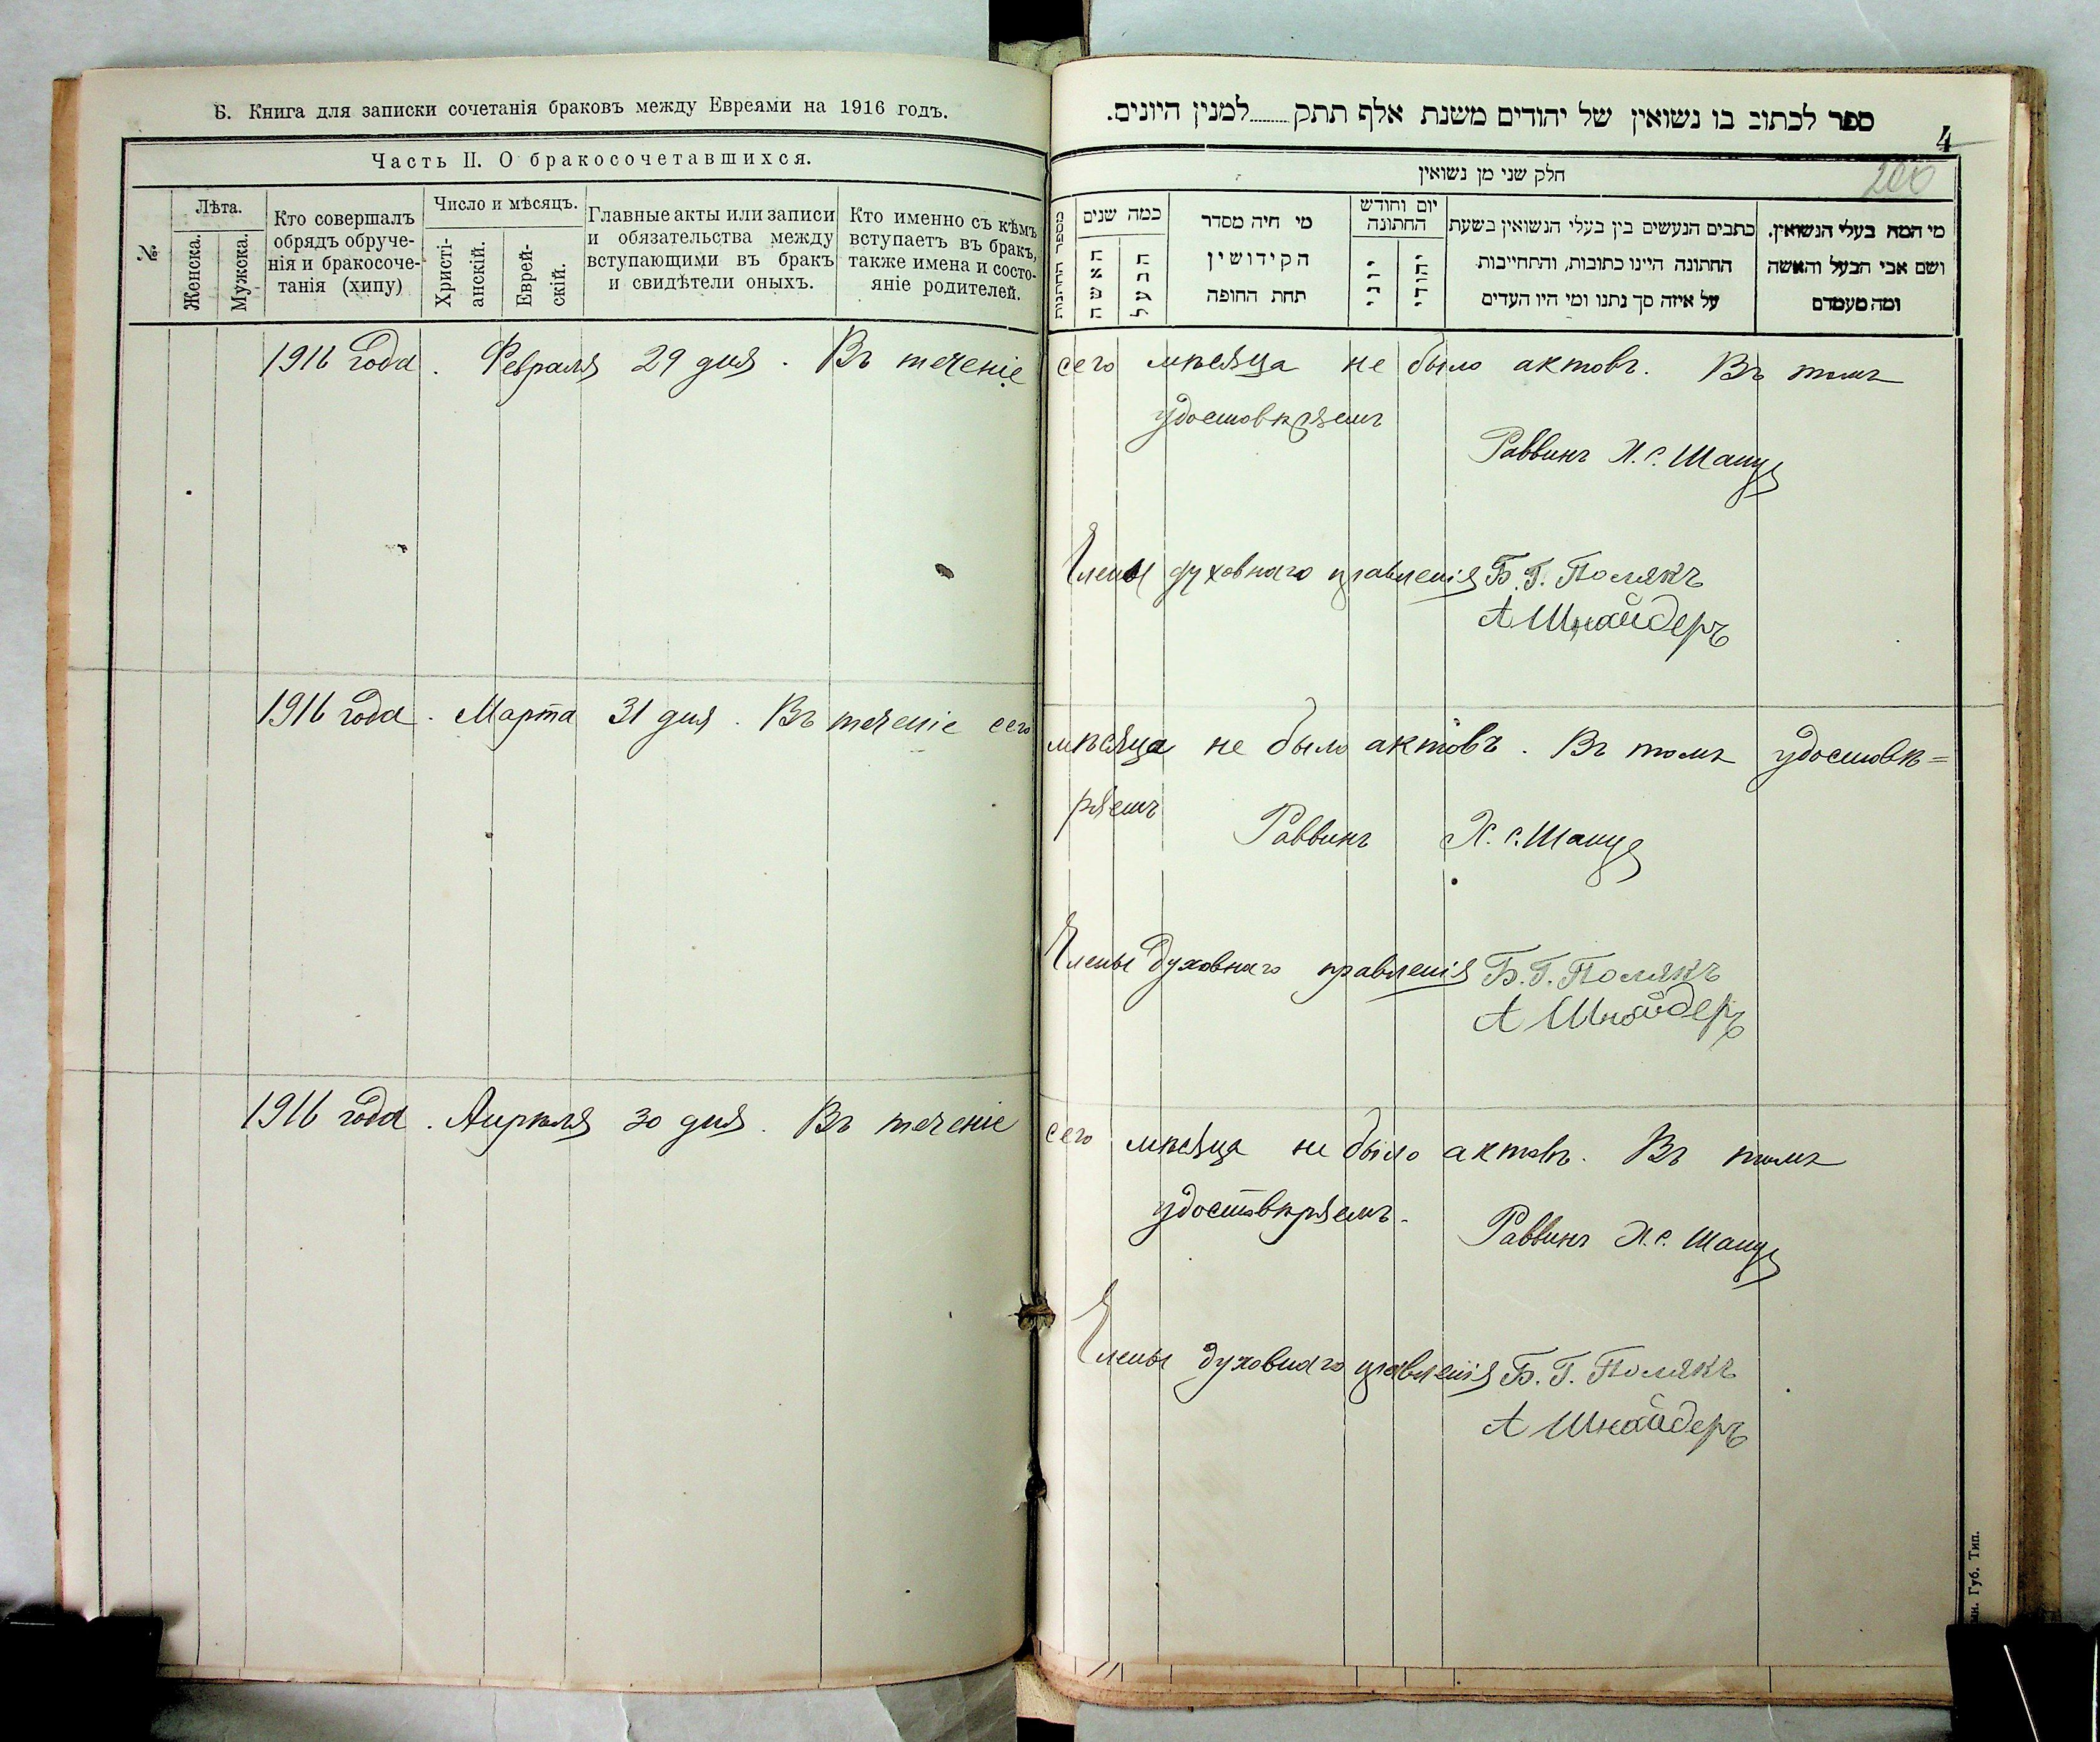 Б. Книга для записки сочетанія браковъ между Евреями на 1916 годъ.
Часть II. О бракосочетавшихся.
№
Лѣта.
Женска.
Мужска.
Кто совершалъ
обрядъ обруче-
нія и бракосоче-
танія (хипу)
Число и мѣсяцъ.
Христі-
анскій.
Еврей-
скій.
Главные акты или записи
и обязательства между
вступающими въ бракъ
и свидѣтели оныхъ.
Кто именно съ кѣмъ
вступаетъ въ бракъ,
также имена и состо-
яніе родителей.
ספר לכתוב בו נשואין של יהודים משנת אלף תתק.........למנין היונים.
4
200
חלק שני מן נשואין
מספר החתונות
כמה שנים
האשה
הבעל
מי חיה מסדר
הקידושין
תחת החופה
יום וחודש
החתונה
יוני
יהודי
כתבים הנעשים בין בעלי הנשואין בשעת
החתונה היינו כתובות, והתחייבות
על איזה סך נתנו ומי היו העדים
מי המה בעלי הנשואין.
ושם אבי הבעל והאשה
ומה מעמדם
1916 года. Февраля 29 дня. Въ теченіе сего мѣсяца не было актовъ. Въ томъ
удостовѣряемъ
Раввинъ Х. С. Шапиро
Члены духовнаго правленія Б. Г. Полякъ
А Шнайдеръ
1916 года. Марта 31 дня. Въ теченіе сего мѣсяца не было актовъ. Въ томъ удостовѣ=
ряемъ
Раввинъ Х. С. Шапиро
Члены духовнаго правленія Б. Г. Полякъ
А Шнайдеръ
1916 года. Апрѣля 30 дня. Въ теченіе сего мѣсяца не было актовъ. Въ томъ
удостовѣряемъ.
Раввинъ Х. С. Шапиро
Члены духовнаго правленія Б. Г. Полякъ
А Шнайдеръ
Губ. Тип.